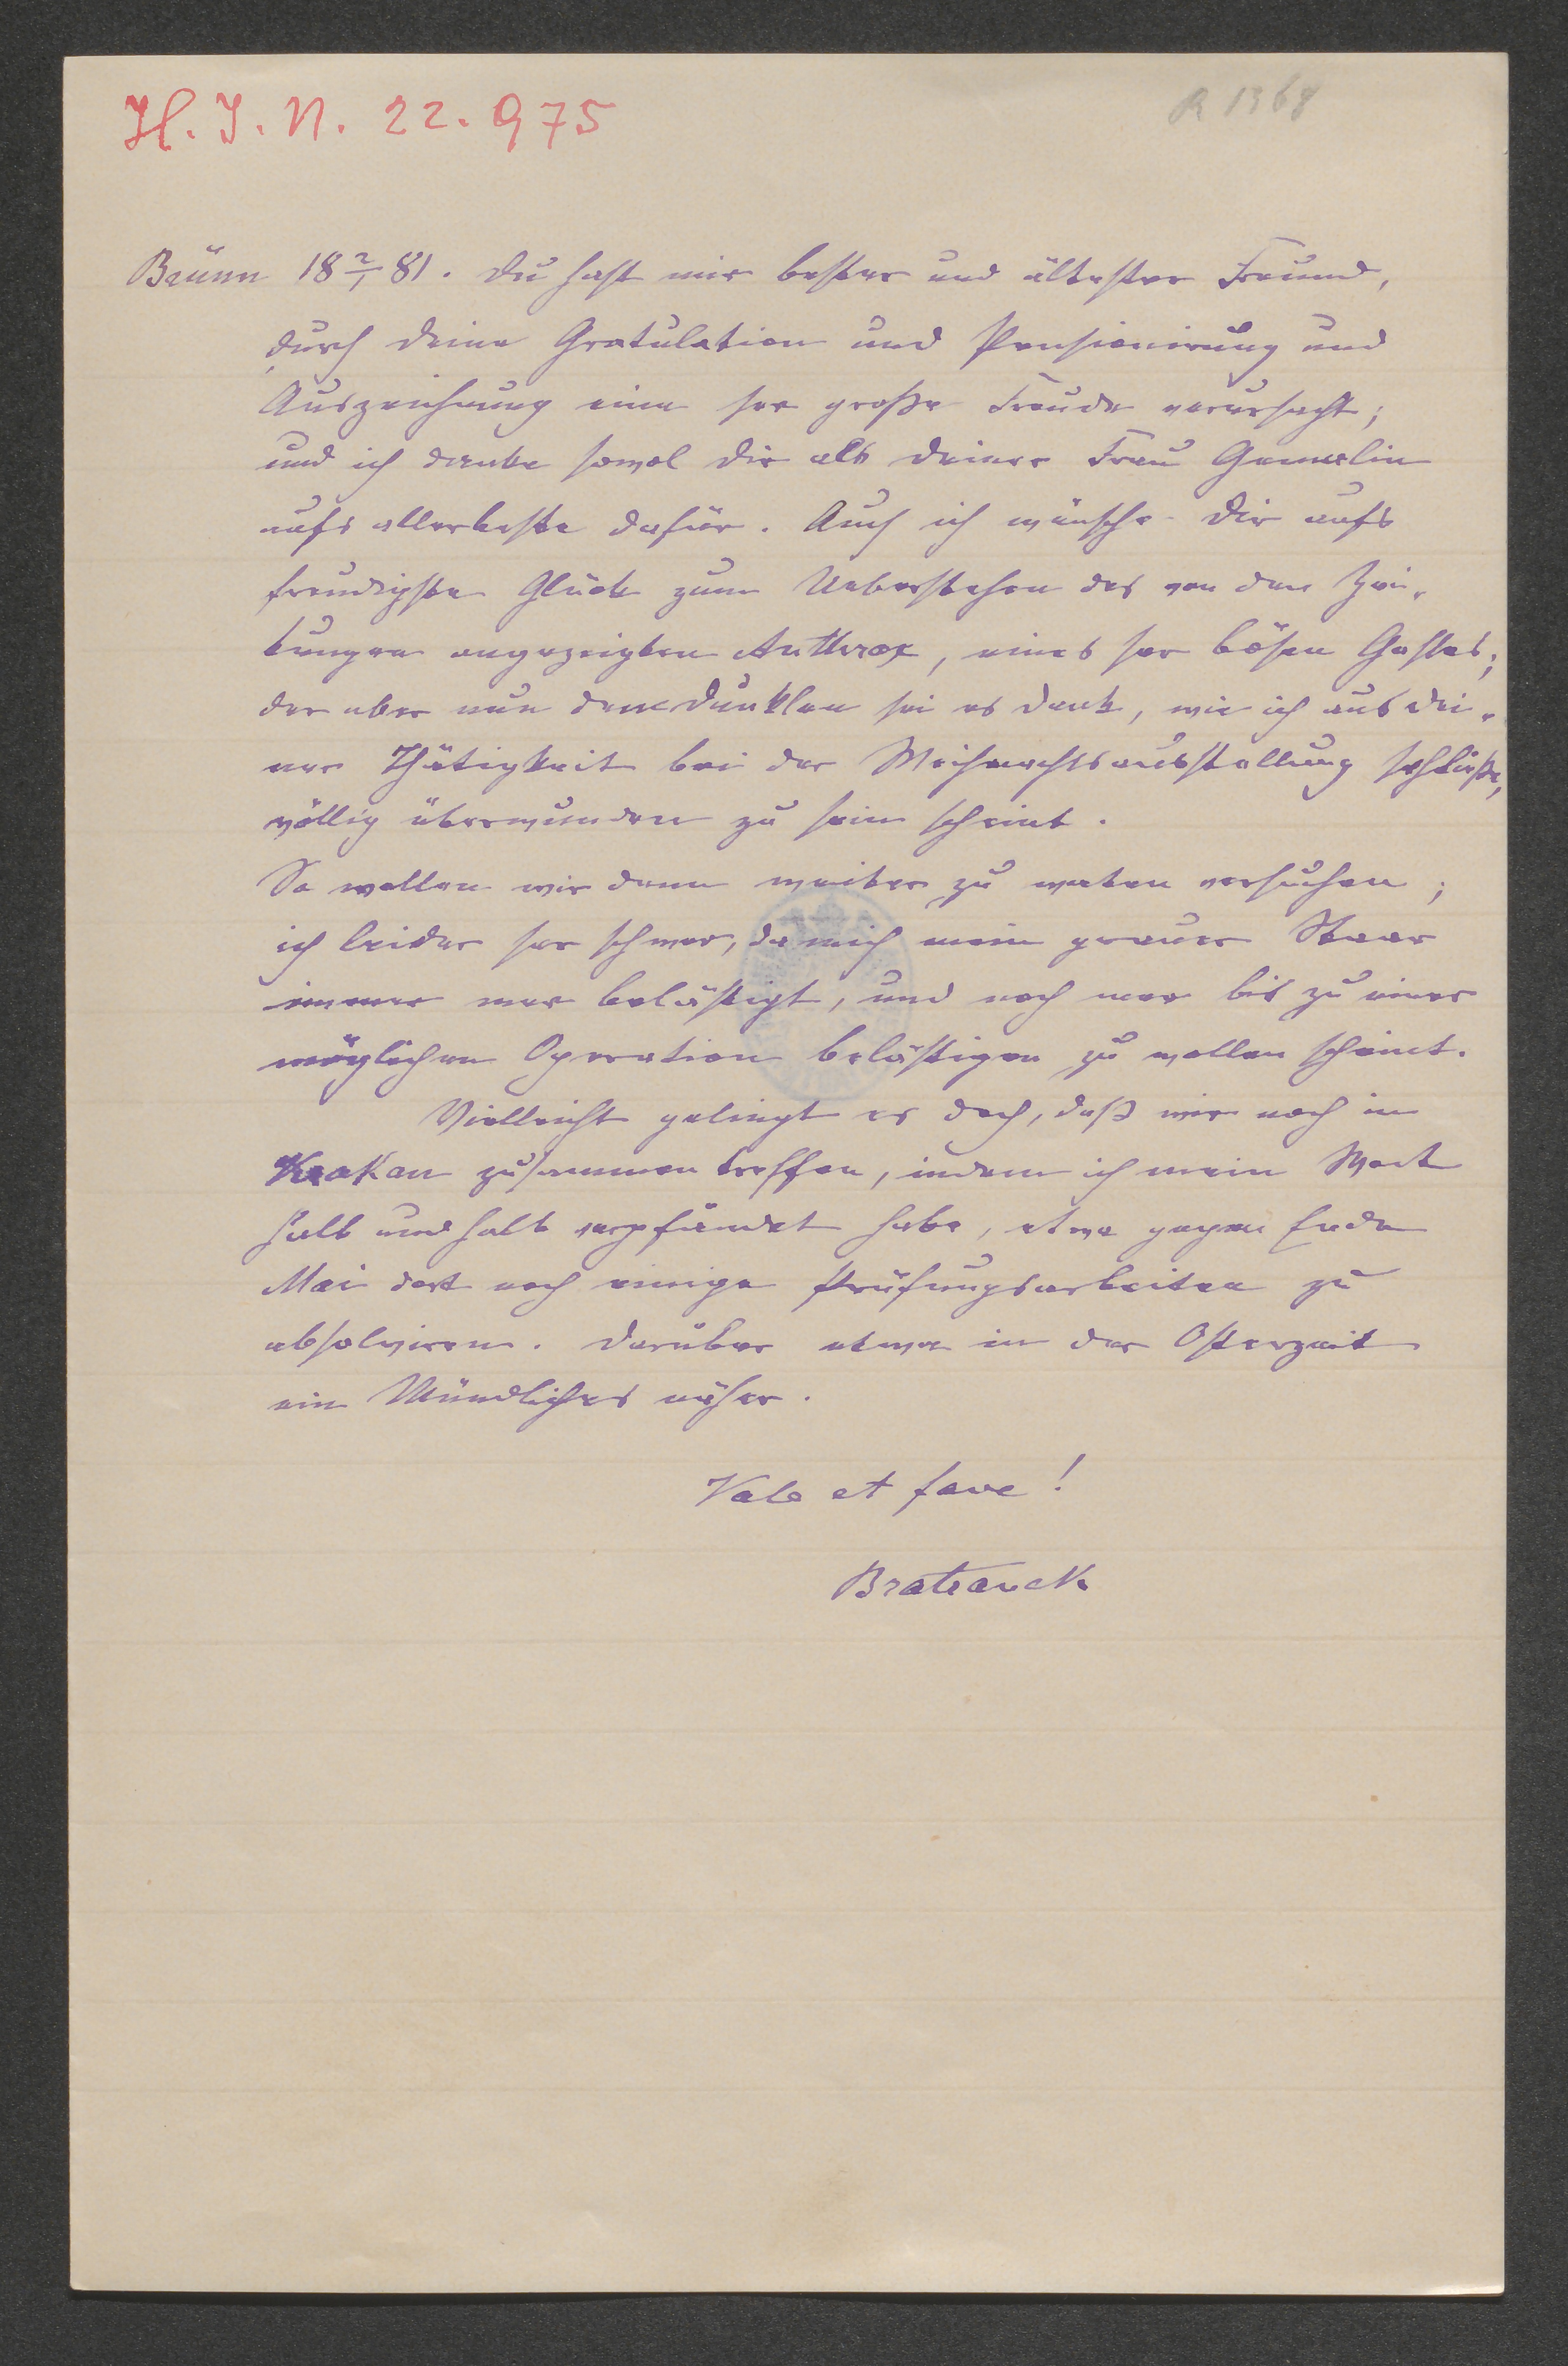 H. I. N. 22.975
R 1368
Brünn 18 2/1 81. Du hast mir bester und ältester Freund,
durch deine Gratulation und Pensionirung und
Auszeichnung eine ser große Freude verursacht;
und ich danke sowol dir als deiner Frau Gemalin
aufs allerbeste dafür. Auch ich wünsche dir aufs
freudigste Glück zum Ueberstehen des von den Zei-
tungen angezeigten Anthrax, eines ser bösen Gastes,
der aber nun dem Dunklen sei es Dank, wie ich aus dei-
ner Thätigkeit bei der Weihnachtsausstellung schließe,
völlig überwunden zu sein scheint.
So wollen wir denn weiter zu waten versuchen;
ich leider ser schwer, da mich mein grauer Staar
immer mer belästigt, und noch mer bis zu einer
möglichen Operation belästigen zu wollen scheint.
Vielleicht gelingt es doch, daß wir noch in
Krakau zusammen treffen, indem ich mein Wort
halb und halb verpfändet habe, etwa gegen Ende
Mai dort noch einige Prüfungsarbeiten zu
absolviren. Darüber etwa in der Osterzeit
ein Mündliches näher.
Vale et fave!
Bratranek